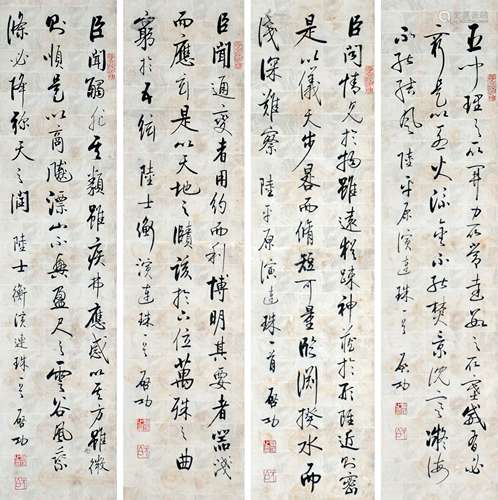 臣聞理之所開力所常達數之所塞威有必
窮是以烈火流金不能焚景沈寒凝海
不能結風 陸平原演連珠一首 啟功
臣聞情見於物雖遠猶疎神藏於形雖近則密
是以儀天步晷而脩短可量臨淵揆水而
淺深難察 陸平原演連珠一首 啟功
臣聞通變者用約而利博明其要者器淺
而應玄是以天地之賾該於六位萬殊之曲
窮於五絃 陸士衡演連珠一首 啟功
臣聞觸非其類雖疾弗應感以其方雖微
則順是以商飇漂山不興盈尺之雲谷風乘
條必降彌天之潤 陸士衡演連珠一首 啟功